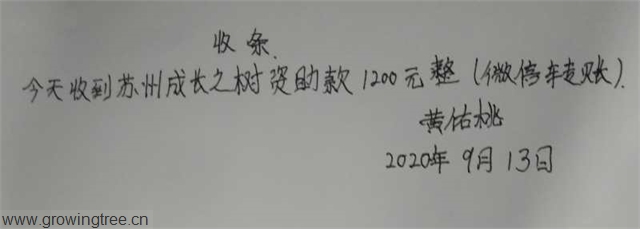 收条.
今天收到苏州成长之树资助款1200元整(微停车走账).
黄佑桃
2020年9月13日
www.growingtree.cn